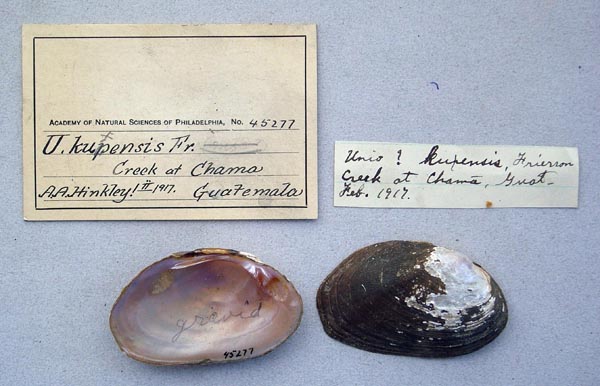 ACADEMY OF NATURAL SCIENCES OF PHILADELPHIA, No. 45277
U. kupensis Fr.
Creek at Chama
A.A. Hinkley! II 1917. Guatemala
Unio ? kupensis, Frierson
Creek at Chama, Guat-
Feb. 1917.
gravid
45277